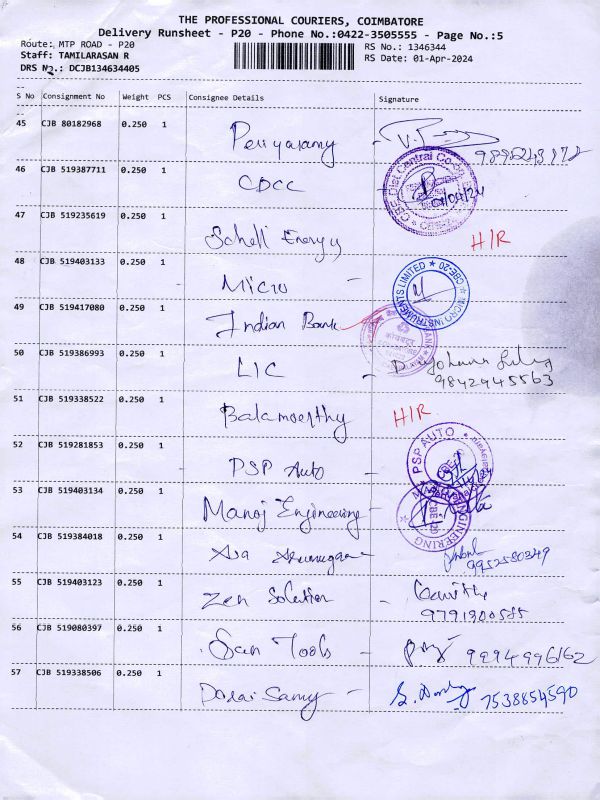 THE PROFESSIONAL COURIERS, COIMBATORE
Delivery Runsheet - P20 - Phone No.:0422-3505555 - Page No.:5
Route: MTP ROAD - P20
RS No.: 1346344
Staff: TAMILARASAN R
RS Date: 01-Apr-2024
DRS No.: DCJB134634405
S No Consignment No Weight PCS Consignee Details Signature
45 CJB 80182968 0.250 1 Periyasamy
46 CJB 519387711 0.250 1 CDCC 01/04/24
47 CJB 519235619 0.250 1 Schell Energy H/R
48 CJB 519403133 0.250 1 Micro - MICRO INSTRUMENTS LIMITED CBE-20
49 CJB 519417080 0.250 1 Indian Bank
50 CJB 519386993 0.250 1 LIC - 9842945563
51 CJB 519338522 0.250 1 Balamoorthy H/R
52 CJB 519281853 0.250 1 PSP Auto - PSP AUTO
53 CJB 519403134 0.250 1 Manoj Engineering - ENGINEERING
54 CJB 519384018 0.250 1 9952580349
55 CJB 519403123 0.250 1 Zen Solution - 9791300585
56 CJB 519080397 0.250 1 San Tools - 9294996162
57 CJB 519338506 0.250 1 Dorai Samy - 7538854590